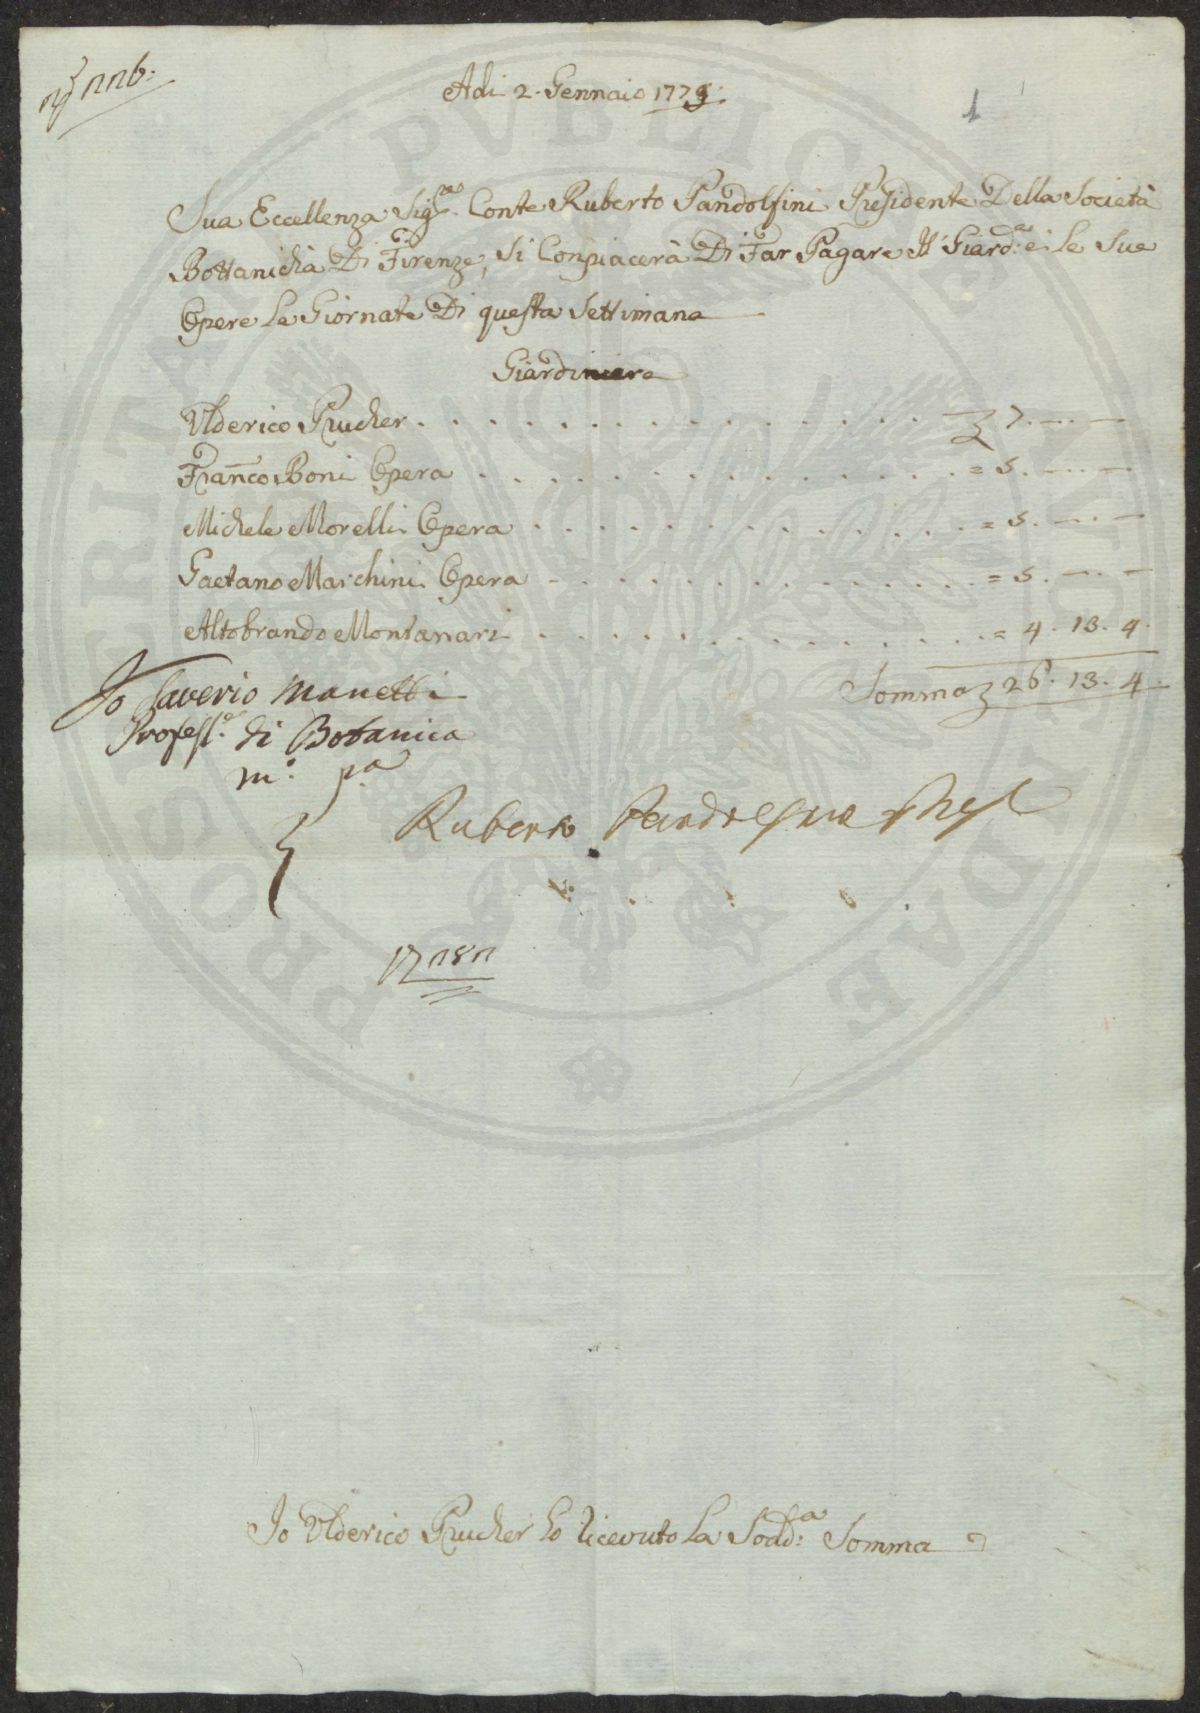 Adi 2. Gennaio 1779.
1
Sua Eccellenza Sig.re Conte Ruberto Pandolfini Presidente Della Società
Bottanicha Di Firenze, Si Conpiacerà Di Far Pagare Il Giard.e e i Le Sue
Opere Le Giornate Di questa Settimana
Giardiniere
Ulderico Prucher . . . . . . . . . . . . . . 7. — . —
Fran.co Boni Opera . . . . . . . . . . . . . = 5. — . —
Michele Morelli Opera . . . . . . . . . . . . = 5. — . —
Gaetano Marchini Opera . . . . . . . . . . . = 5. — . —
Altobrando Montanari . . . . . . . . . . . . = 4. 13. 4.
Somma 26. 13. 4.
Io Saverio Manetti
Profess.e di Botanica
m.o p.a
Ruberto Pandolfini Pres
Io Ulderico Prucher ho ricevuto La Sodd.a Somma
PROSPERITATI PVBLICAE